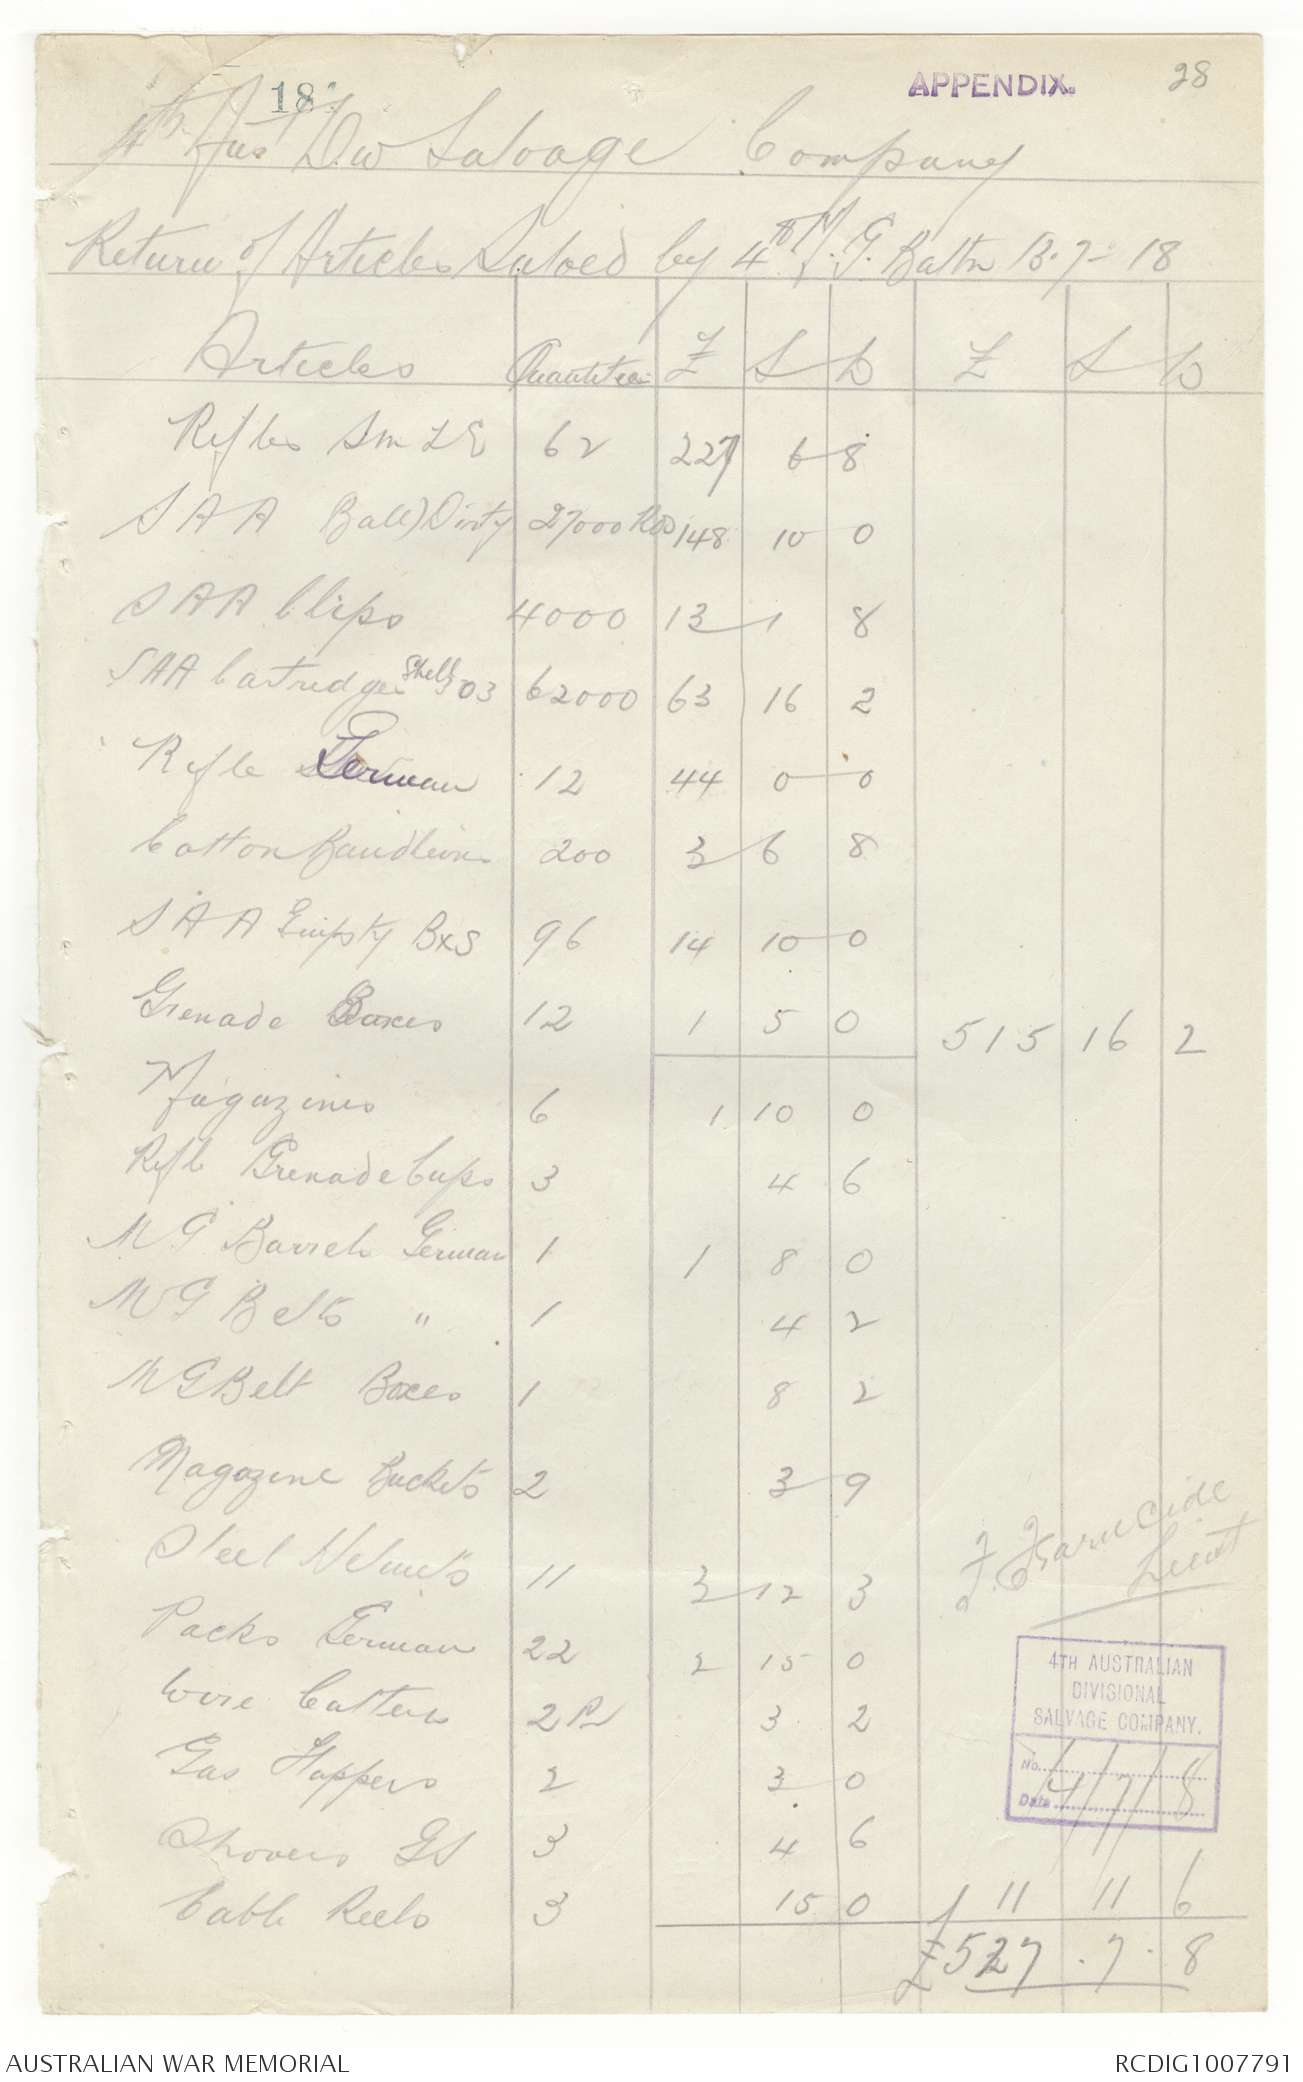 18
APPENDIX.
28
4th Aus Div Salvage Company
Return of Articles Salved by 4th M. G. Battn 13-7-18
Articles Quantities £ S D £ S D
Rifles Sm L E 62 227 6 8
S A A Ball) Dirty 27000 Rds 148 10 0
S A A Clips 4000 13 1 8
SAA Cartridge Shells 303 62000 63 16 2
Rifle German 12 44 0 0
Cotton Bandliers 200 3 6 8
S A A Empty Bxs 96 14 10 0
Grenade Boxes 12 1 5 0 515 16 2
Magazines 6 1 10 0
Rifle Grenade Cups 3 4 6
M G Barrels German 1 1 8 0
M G Belts " 1 4 2
M G Belt Boxes 1 8 2
Magazine Buckets 2 3 9
Steel Helmets 11 3 12 3
Packs German 22 2 15 0
Wire Cutters 2 Pr 3 2
Gas Flappers 2 3 0
Shovels GS 3 4 6
Cable Reels 3 15 0 11 11 6
£527 . 7 . 8
Lieut
4TH AUSTRALIAN
DIVISIONAL
SALVAGE COMPANY.
No.
Date 14/7/18
AUSTRALIAN WAR MEMORIAL
RCDIG1007791